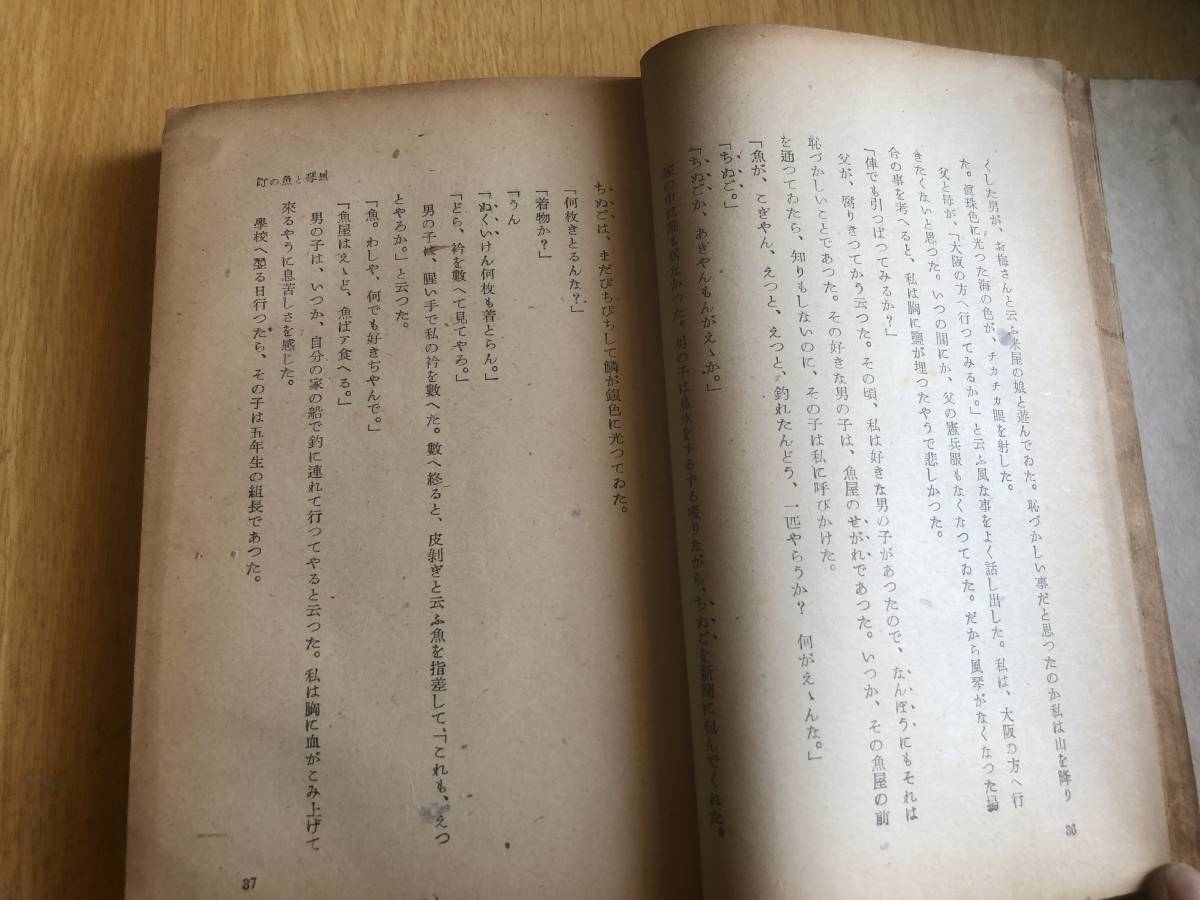 くした男が、お梅さんと云ふ米屋の娘と遊んでゐた。恥づかしい事だと思つたのか私は山を降り
た。眞珠色に光つた海の色が、チカチカ眼を射した。
父と母が、「大阪の方へ行つてみるか。」と云ふ風な事をよく話し出した。私は、大阪の方へ行
きたくないと思つた。いつの間にか、父の憲兵服もなくなつてゐた。だから風琴がなくなつた場
合の事を考へると、私は胸に鹽が埋つたやうで悲しかつた。
「俥でも引つぱつてみるか？」
父が、腐りきつてかう云つた。その頃、私は好きな男の子があつたので、なんぼうにもそれは
恥づかしいことであつた。その好きな男の子は、魚屋のせがれであつた。いつか、その魚屋の前
を通つてゐたら、知りもしないのに、その子は私に呼びかけた。
「魚が、こぎやん、えつと、えつと、釣れたんどう、一匹やらうか？　何がえゝんな。」
「ちぬご。」
「ちぬごか、あぎやんもんがえゝか。」
家の中は誰も居なかつた。男の子は鼻水をずるずる啜りながら、ちぬごを新聞に包んでくれた。
36
ちぬごは、まだぴちぴちして鱗が銀色に光つてゐた。
「何枚きとるんな？」
「着物か？」
「うん
「ぬくいけん何枚も着とらん。」
「どら、衿を數へて見てやろ。」
男の子は、腥い手で私の衿を數へた。數へ終ると、皮剥ぎと云ふ魚を指差して、「これも、えつ
とやろか。」と云つた。
「魚。わしや、何でも好きぢやんで。」
「魚屋はえゝど、魚ばァ食へる。」
男の子は、いつか、自分の家の船で釣に連れて行つてやると云つた。私は胸に血がこみ上げて
來るやうに息苦しさを感じた。
學校へ翌る日行つたら、その子は五年生の組長であつた。
風琴と魚の町
37